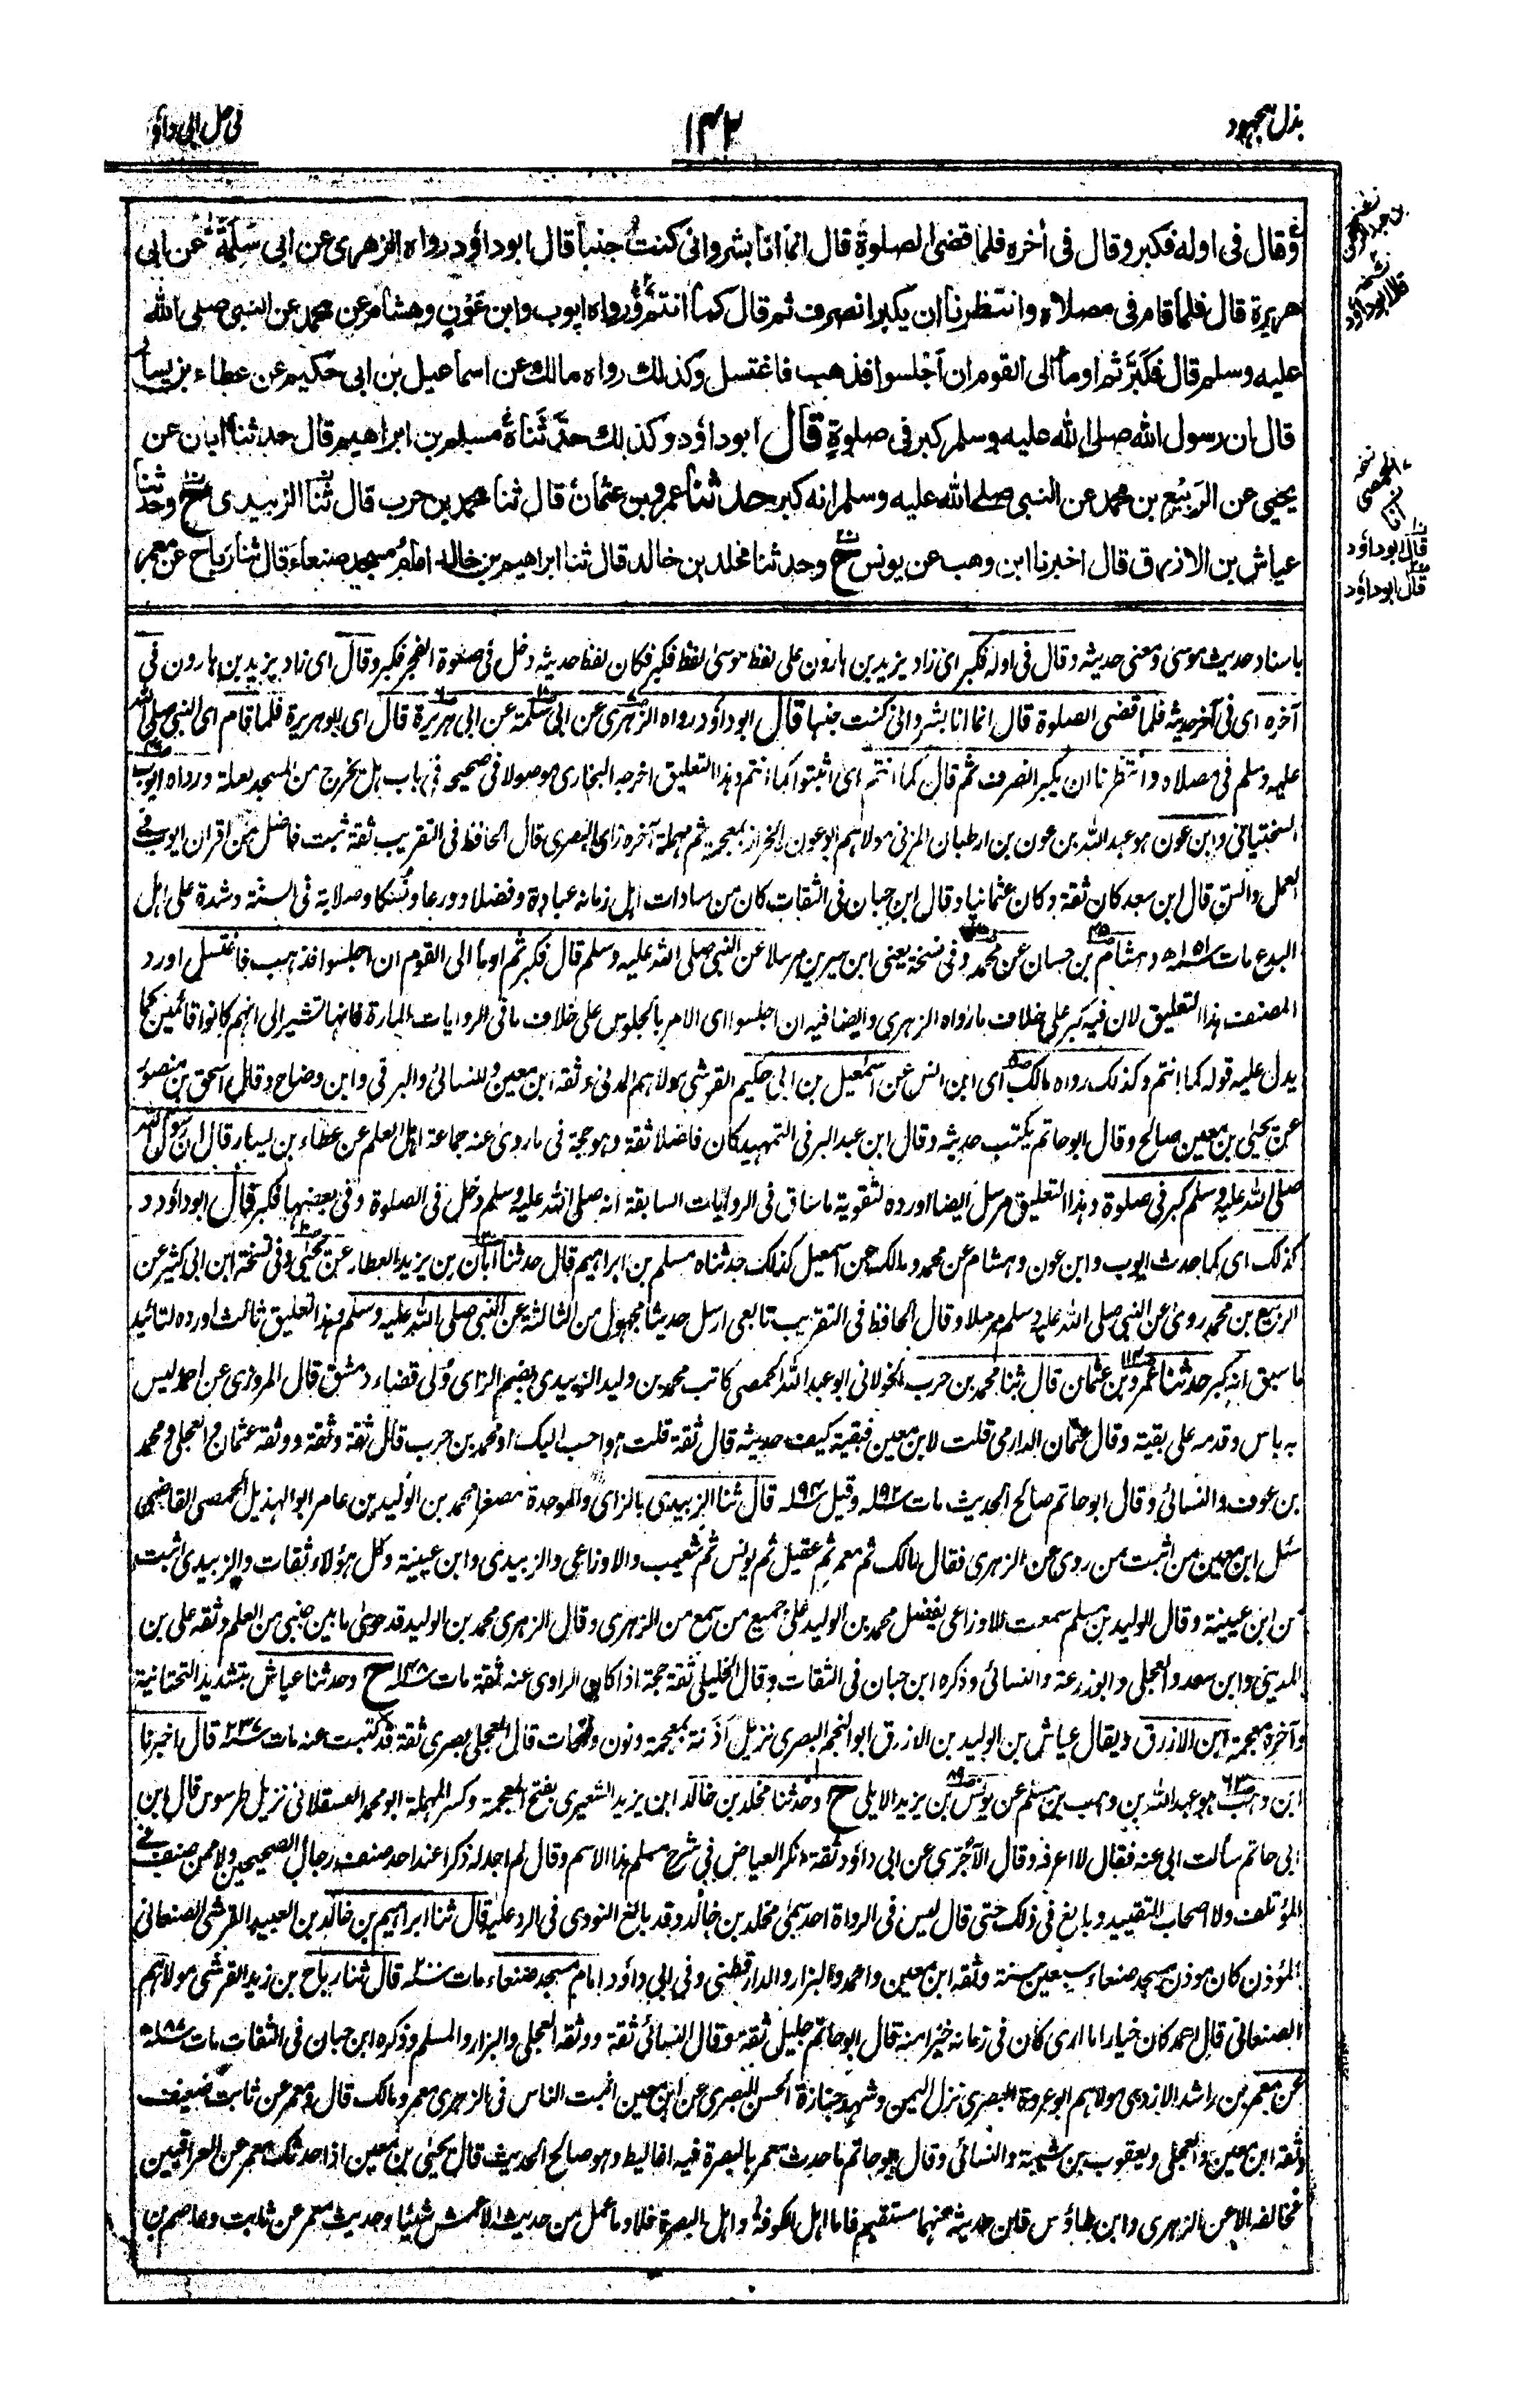 بذل المجهود
١٣٢
في حل ابى داؤد
وقال فى اوله فكبر وقال فى أخره فلما قضى الصلوة قال انما انا بشر وانى كنت جنبا قال ابوداؤد رواه الزهرى عن ابى سلمة عن ابى
هريرة قال فلما قام فى مصلاه وانتظرنا ان يكبر انصرف ثم قال كما انتم ورواه ايوب وابن عون وهشام عن محمد عن النبى صلى الله
عليه وسلم قال فكبر ثم اومأ الى القوم ان اجلسوا فذهب فاغتسل وكذلك رواه مالك عن اسماعيل بن ابى حكيم عن عطاء بن يسار
قال ان رسول الله صلى الله عليه وسلم كبر فى صلوة قال ابوداؤد وكذلك حدثناه مسلم بن ابراهيم قال حدثنا ابان عن
يحيى عن الربيع بن محمد عن النبى صلى الله عليه وسلم انه كبر حدثنا عمرو بن عثمان قال ثنا محمد بن حرب قال ثنا الزبيدى ح وحدثنا
عياش بن الازرق قال اخبرنا ابن وهب عن يونس ح وحدثنا مخلد بن خالد قال ثنا ابراهيم بن خالد امام مسجد صنعاء قال ثنا رباح عن معمر
نسخه
قال ابوداؤد
نسخه
الحمصى
انا
قال ابوداؤد
قال ابوداؤد
باسناد حديث موسى ومعنى حديثه وقال فى اوله فكبر اى زاد يزيد بن هارون على لفظ موسى لفظ فكبر فكان لفظ حديثه دخل فى صلوة الفجر فكبر وقال اى زاد يزيد بن هارون فى
آخره اى فى آخر حديثه فلما قضى الصلوة قال انما انا بشر وانى كنت جنبا قال ابوداؤد رواه الزهرى عن ابى سلمة عن ابى هريرة قال اى ابو هريرة فلما قام اى النبى صلى الله
عليه وسلم فى مصلاه وانتظرنا ان يكبر انصرف ثم قال كما انتم اى اثبتوا كما انتم وهذا التعليق اخرجه البخارى موصولا فى صحيحه فى باب هل يخرج من المسجد لعلة ورواه ايوب
السختيانى وابن عون هو عبد الله بن عون بن ارطبان المزنى مولاهم ابو عون الخراز بمعجمة ثم مهملة آخره زاى البصرى قال الحافظ فى التقريب ثقة ثبت فاضل من اقران ايوب فى
العمل والسن قال ابن سعد كان ثقة وكان عثمانيا وقال ابن حبان فى الثقات كان من سادات اهل زمانه عبادة وفضلا وورعا ونسكا وصلابة فى السنة وشدة على اهل
البدع مات ١٥١ه وهشام بن حسان عن محمد وفى نسخة يعنى ابن سيرين مرسلا عن النبى صلى الله عليه وسلم قال فكبر ثم اومأ الى القوم ان اجلسوا فذهب فاغتسل اورد
المصنف هذا التعليق لان فيه كبر على خلاف ما رواه الزهرى وايضا فيه ان اجلسوا اى الامر بالجلوس على خلاف ما فى الروايات المارة فانها تشير الى انهم كانوا قائمين كما
يدل عليه قوله كما انتم وكذلك رواه مالك اى ابن انس عن اسمعيل بن ابى حكيم القرشى مولاهم المدنى وثقه ابن معين والنسائى والبرقى وابن وضاح وقال اسحق بن منصور
عن يحيى بن معين صالح وقال ابو حاتم يكتب حديثه وقال ابن عبد البر فى التمهيد كان فاضلا ثقة وهو حجة فى ما روى عنه جماعة اهل العلم عن عطاء بن يسار قال ان رسول الله
صلى الله عليه وسلم كبر فى صلوة وهذا التعليق مرسل ايضا اورده لتقوية ما ساق فى الروايات السابقة انه صلى الله عليه وسلم دخل فى الصلوة وفى بعضها فكبر قال ابوداؤد و
كذلك اى كما حدث ايوب وابن عون وهشام عن محمد ومالك عن اسمعيل كذلك حدثناه مسلم بن ابراهيم قال حدثنا ابان بن يزيد العطار عن يحيى وفى نسخة ابن ابى كثير عن
الربيع بن محمد روى عن النبى صلى الله عليه وسلم مرسلا وقال الحافظ فى التقريب تابعى ارسل حديثا مجهول من الثالثة عن النبى صلى الله عليه وسلم وهذا التعليق ثالث اورده لتائيد
ما سبق انه كبر حدثنا عمرو بن عثمان قال ثنا محمد بن حرب الخولانى ابو عبد الله الحمصى كاتب محمد بن وليد الزبيدى بضم الزاى ولى قضاء دمشق قال المروزى عن احمد ليس
به باس وقدمه على بقية وقال عثمان الدارمى قلت لابن معين فبقية كيف حديثه قال ثقة قلت هو احب اليك او محمد بن حرب قال ثقة وثقة ووثقه عثمان والعجلى ومحمد
بن عوف والنسائى وقال ابو حاتم صالح الحديث مات ١٩٢ه وقيل ١٩٤ه قال ثنا الزبيدى بالزاى والموحدة مصغرا محمد بن الوليد بن عامر ابو الهذيل الحمصى القاضى
سئل ابن معين من اثبت من روى عن الزهرى فقال مالك ثم معمر ثم عقيل ثم يونس ثم شعيب والاوزاعى والزبيدى وابن عيينة وكل هؤلاء ثقات والزبيدى اثبت
من ابن عيينة وقال الوليد بن مسلم سمعت الاوزاعى يفضل محمد بن الوليد على جميع من سمع من الزهرى وقال الزهرى محمد بن الوليد قد حوى ما بين جنبى من العلم وثقه على بن
المدينى وابن سعد والعجلى وابو زرعة والنسائى وذكره ابن حبان فى الثقات وقال الخليلى ثقة حجة اذا كان الراوى عنه ثقة مات ١٤٨ه ح وحدثنا عياش بتشديد التحتانية
وآخره معجمة ابن الازرق ويقال عياش بن الوليد بن الازرق ابو النجم البصرى نزيل اذنة بمعجمة ونون وفتحات قال العجلى بصرى ثقة قد كتبت عنه مات ٢٣٧ه قال اخبرنا
ابن وهب هو عبد الله بن وهب بن مسلم عن يونس بن يزيد الايلى ح وحدثنا مخلد بن خالد ابن يزيد الشعيرى بفتح المعجمة وكسر المهملة ابو محمد العسقلانى نزيل طرسوس قال ابن
ابى حاتم سألت ابى عنه فقال لا اعرفه وقال الآجرى عن ابى داؤد ثقة وانكر العياض فى شرح مسلم هذا الاسم وقال لم اجد له ذكرا عند احد صنف رجال الصحيحين ولا ممن صنف فى
المؤتلف ولا اصحاب التقييد وبالغ فى ذلك حتى قال ليس فى الرواة احد سمى مخلد بن خالد وقد بالغ النووى فى الرد عليه قال ثنا ابراهيم بن خالد بن العبيد القرشى الصنعانى
المؤذن كان موذن مسجد صنعاء سبعين سنة وثقه ابن معين واحمد والبزار والدارقطنى وفى ابى داؤد امام مسجد صنعاء مات ٢٠٠ه قال ثنا رباح بن زيد القرشى مولاهم
الصنعانى قال احمد كان خيارا ما ارى كان فى زمانه خير منه قال ابو حاتم جليل ثقة وقال النسائى ثقة ووثقه العجلى والبزار والمسلم وذكره ابن حبان فى الثقات مات ١٨٧ه
عن معمر بن راشد الازدى مولاهم ابو عروة البصرى نزل اليمن وشهد جنازة الحسن البصرى عن ابن معين اثبت الناس فى الزهرى معمر ومالك قال ومعمر عن ثابت ضعيف
وثقه ابن معين والعجلى ويعقوب بن شيبة والنسائى وقال ابو حاتم ما حدث معمر بالبصرة فيه اغاليط وهو صالح الحديث قال يحيى بن معين اذا حدثك معمر عن العراقيين
فخالفه الا عن الزهرى وابن طاؤس فان حديثه عنهما مستقيم فاما اهل الكوفة واهل البصرة فلا وما عمل من حديث الاعمش شيئا وحديث معمر عن ثابت وعاصم بن